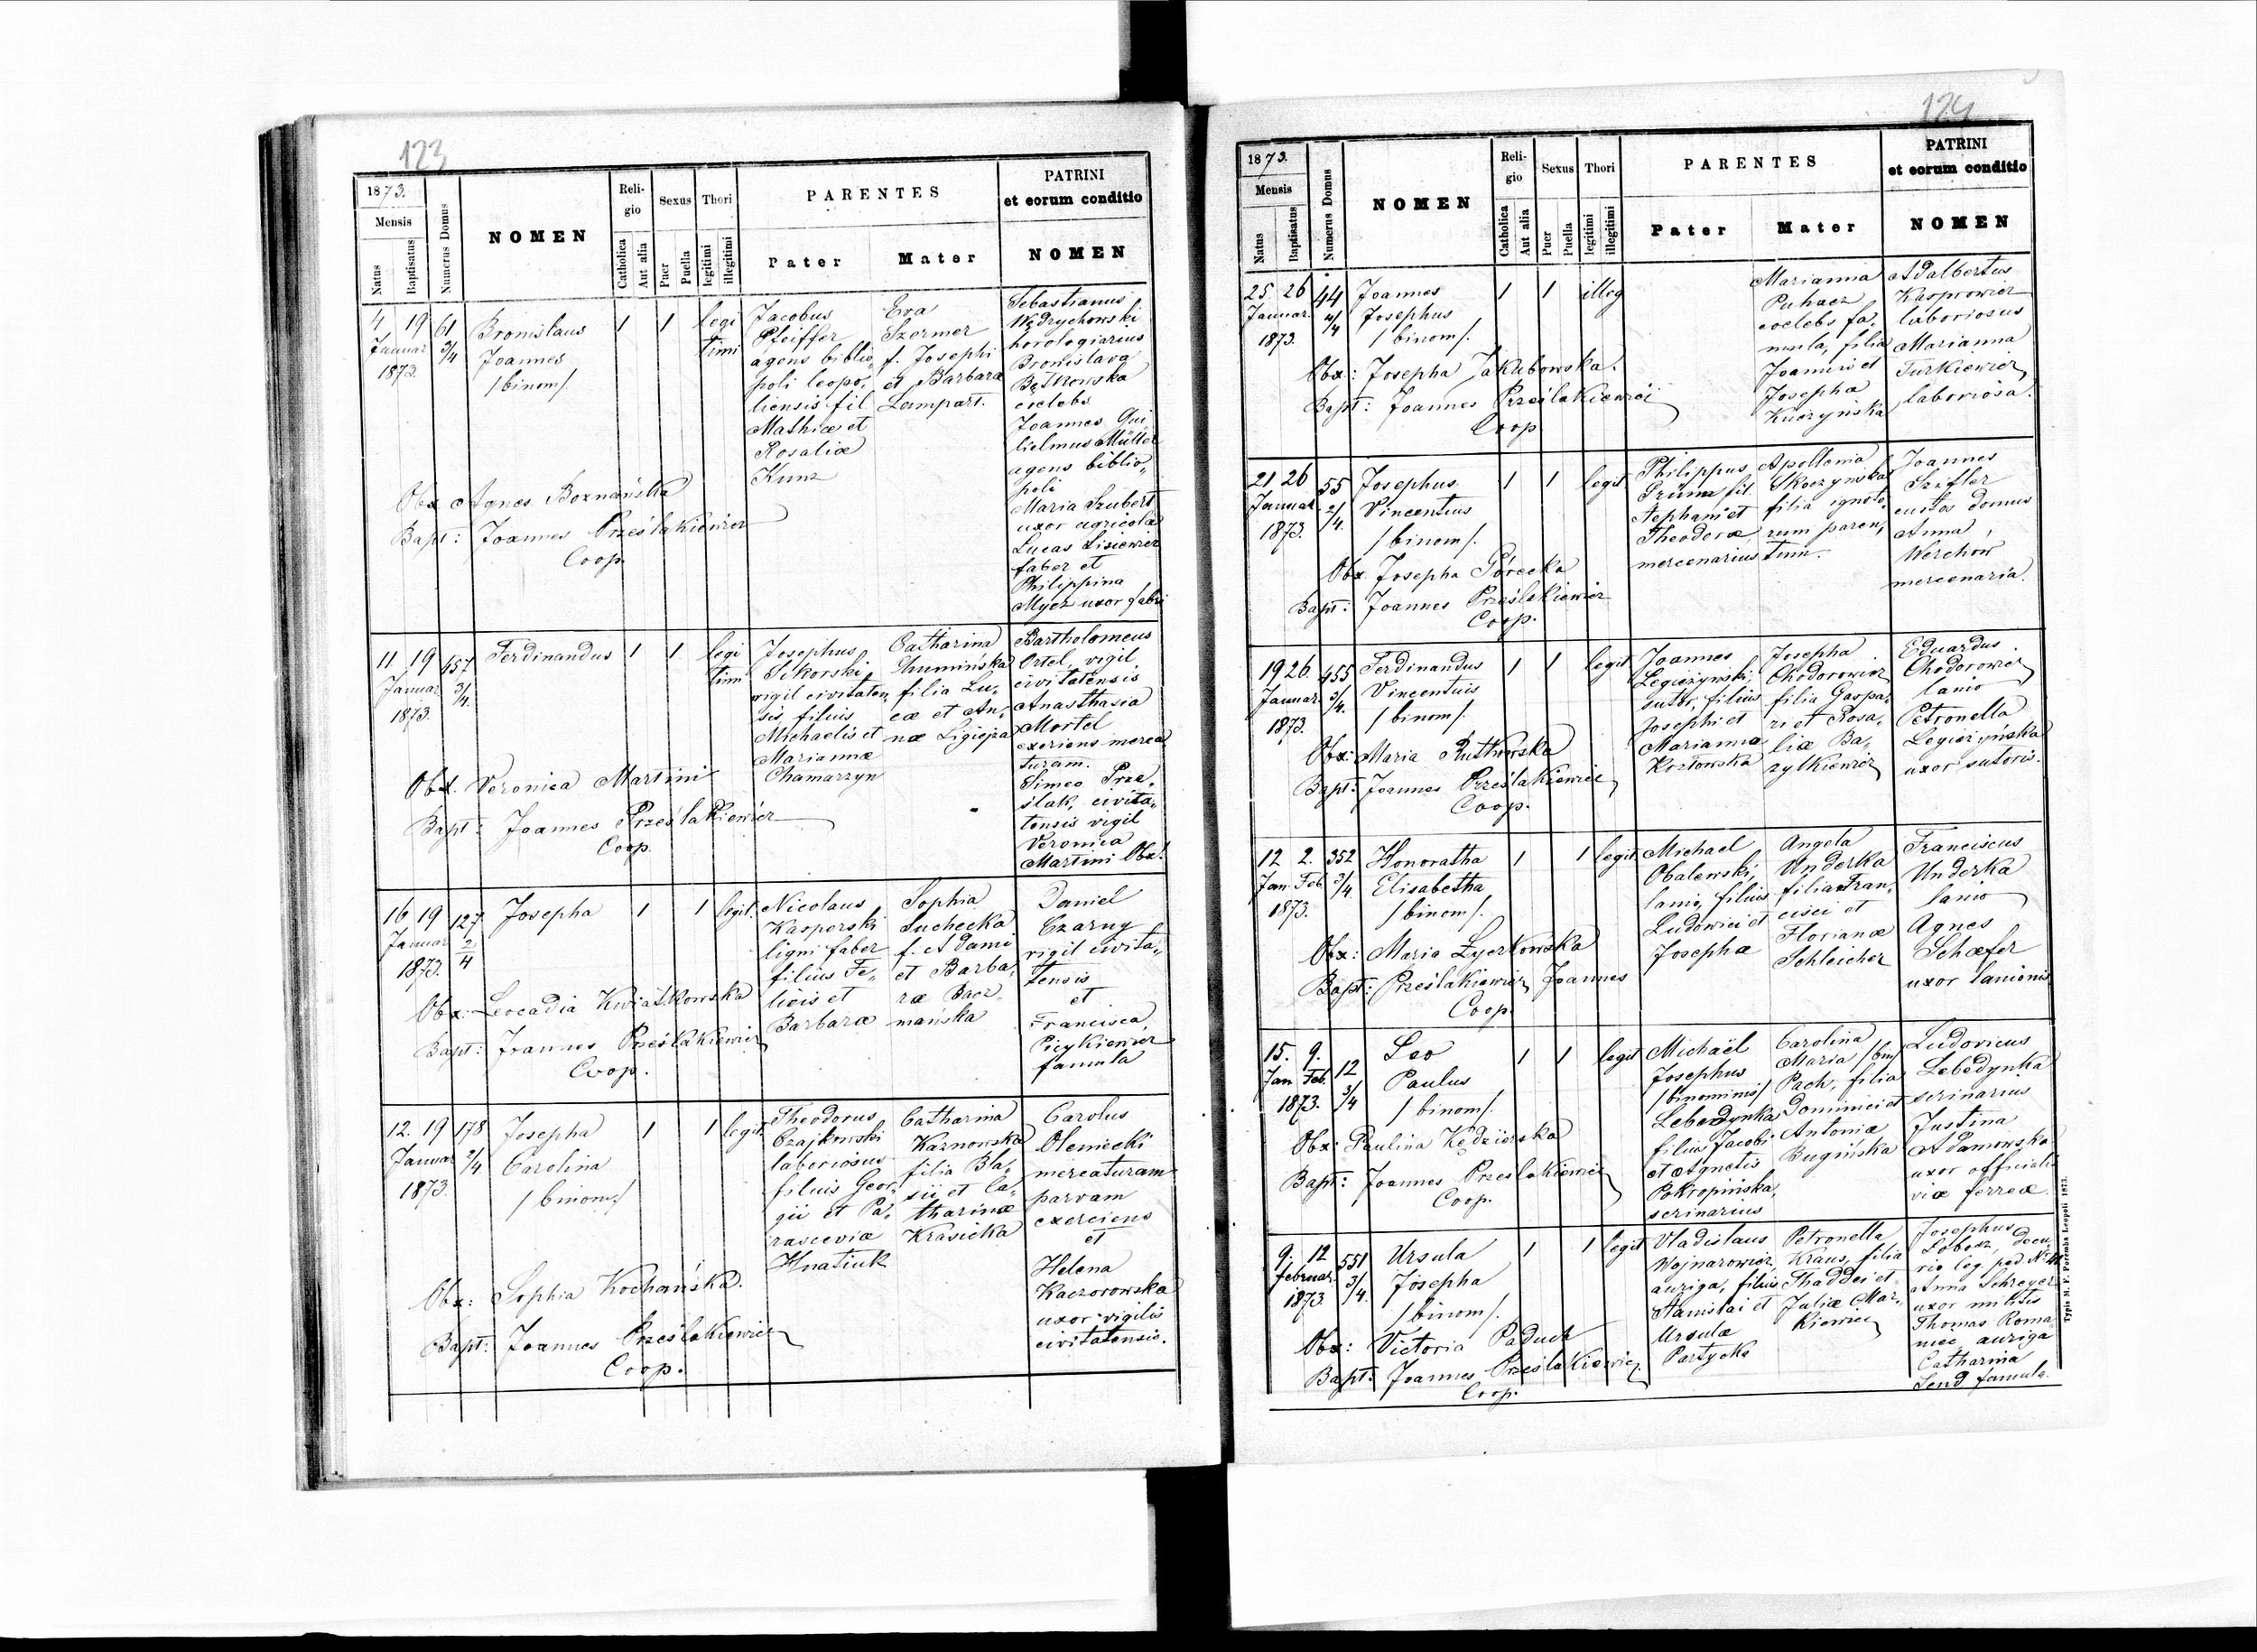 123
1873.
Mensis
Natus
Baptisatus
Numerus Domus
NOMEN
Religio
Catholica
Aut alia
Sexus
Puer
Puella
Thori
legitimi
illegitimi
PARENTES
Pater
Mater
PATRINI
et eorum conditio
NOMEN
4 19 61
Januar 3/4
1873.
Bronislaus
Joannes
/binom/.
1 1 legi
timi
Jacobus
Pfeiffer
agens biblio„
poli leopo„
liensis fil
Mathiæ et
Rosaliæ
Kunz
Eva
Szermer
f. Josephi
et Barbara
Lampart.
Sebastianus
Wędrychowski
horologiarius
Bronislava
Bętkowska
coelebs
Joannes Gui
lielmus Müller
agens biblio„
poli
Maria Szubert
uxor agricolæ
Lucas Lisiewicz
faber et
Philippina
Mycz uxor fabri
Obx Agnes Boznańska
Bapt: Joannes Prześlakiewicz
Coop.
11 19 657
Januar 3/4.
1873.
Ferdinandus
1 1 legi
timi
Josephus
Sikorski
vigil civitaten„
sis, filius
Michaelis et
Mariannæ
Chamarzyn
Catharina
Chuminska
filia Lu„
cæ et An„
næ Ligięza
Bartholomeus
Ortel, vigil
civitatensis
Anasthasia
Mortel
exeriens merca
turam.
Simeo Prze„
ślak, civita„
tensis vigil
Veronica
Martini Obx!
Obx. Veronica Martini
Bapt: Joannes Prześlakiewicz
Coop.
16 19 127
Januar 2/4
1873.
Josepha
1 1 legit.
Nicolaus
Kasperski
ligni faber
filius Fe„
licis et
Barbaræ
Sophia
Suchecka
f. Adami
et Barba„
ræ Bacz„
mańska
Daniel
Czarny
vigil civita„
tensis
et
Francisca
Picykiewicz
famula
Obx: Leocadia Kwiatkowska
Bapt: Joannes Prześlakiewicz
Coop.
12. 19 178
Januar 2/4
1873.
Josepha
Carolina
/binom/
1 1 legit.
Theodorus
Czajkowski
laboriosus
filius Geor„
gii et Pa„
rasceviæ
Hnatiuk
Catharina
Kaznowska
filia Bla„
sii et Ca„
tharinæ
Krasicka
Carolus
Oleniecki
mercaturam
parvam
exerciens
et
Helena
Kaczorowska
uxor vigilis
civitatensis.
Obx: Sophia Kochańska.
Bapt: Joannes Prześlakiewicz
Coop.
124
1873.
Mensis
Natus
Baptisatus
Numerus Domus
NOMEN
Religio
Catholica
Aut alia
Sexus
Puer
Puella
Thori
legitimi
illegitimi
PARENTES
Pater
Mater
PATRINI
et eorum conditio
NOMEN
25 26 44
Januar 4/4
1873.
Joannes
Josephus
/binom/.
1 1 illeg
Marianna
Puhacz
coelebs fa„
mula, filia
Joannis et
Josepha
Kuczyńska
Adalbertus
Kasprowicz
laboriosus
Marianna
Turkiewicz
laboriosa.
Obx: Josepha Jakubowska.
Bapt: Joannes Prześlakiewicz
Coop
21 26 55
Januar 2/4.
1873.
Josephus
Vincentius
/binom/.
1 1 legit
Philippus
Prüm fil.
Stephani et
Theodoræ
mercenarius
Apollonia
Skoczynska
filia ignoto„
rum paren„
tum.
Joannes
Szifler
custos domus
Anna
Werchow
mercenaria.
Obx Josepha Górecka
Bapt: Joannes Prześlakiewicz
Coop.
19 26. 455
Januar. 3/4.
1873.
Ferdinandus
Vincentius
/binom/.
1 1 legit
Joannes
Legieżynski
sutor, filius
Josephi et
Marianna
Kozłowska
Josepha
Chodorowicz
filia Gaspa„
ri et Rosa„
liæ Ba„
zylkiewicz
Eduardus
Chodorowicz
lanio
Petronella
Legieżyńska
uxor sutoris.
Obx: Maria Rutkowska
Bapt: Joannes Prześlakiewicz
Coop.
12 2. 352
Jan Feb 3/4.
1873.
Honoratha
Elisabetha
/binom/.
1 1 legit.
Michael
Obalewski,
lanio, filius
Ludovici et
Josepha
Angela
Underka
filia Fran„
cisci et
Florianæ
Schleicher
Franciscus
Underka
lanio
Agnes
Schæfer
uxor lanionis
Obx: Maria Łyczkowska
Bapt: Prześlakiewicz Joannes
Coop.
15. 9. 12
Jan Feb. 3/4
1873.
Leo
Paulus
/binom/.
1 1 legit
Michaël
Josephus
/binominis/
Lebedynka
filius Jacobi
et Agnetis
Pokropińska,
scrinarius
Carolina
Maria /bin/
Pach, filia
Dominici et
Antoniæ
Bugińska
Ludovicus
Lebedynka
scrinarius
Justina
Adamowska
uxor officialis
viæ ferreæ.
Obx: Paulina Kędzierska
Bapt: Joannes Prześlakiewicz
Coop.
9. 12 551
Februar. 3/4.
1873.
Ursula
Josepha
/binom/.
1 1 legit
Vladislaus
Wojnarowicz,
auriga, filius
Stanislai et
Ursulæ
Partycka
Petronella
Kraus, filia
Thaddei et
Juliæ Mar„
kiewicz
Josephus
Sobosz, decu„
rio leg. ped. No
Anna Schreyer
uxor militis
Thomas Roma„
nice, auriga
Catharina
Send famula.
Obx: Victoria Paduch
Bapt: Joannes Prześlakiewicz
Coop.
Typis M. F. Poremba Leopoli 1873.